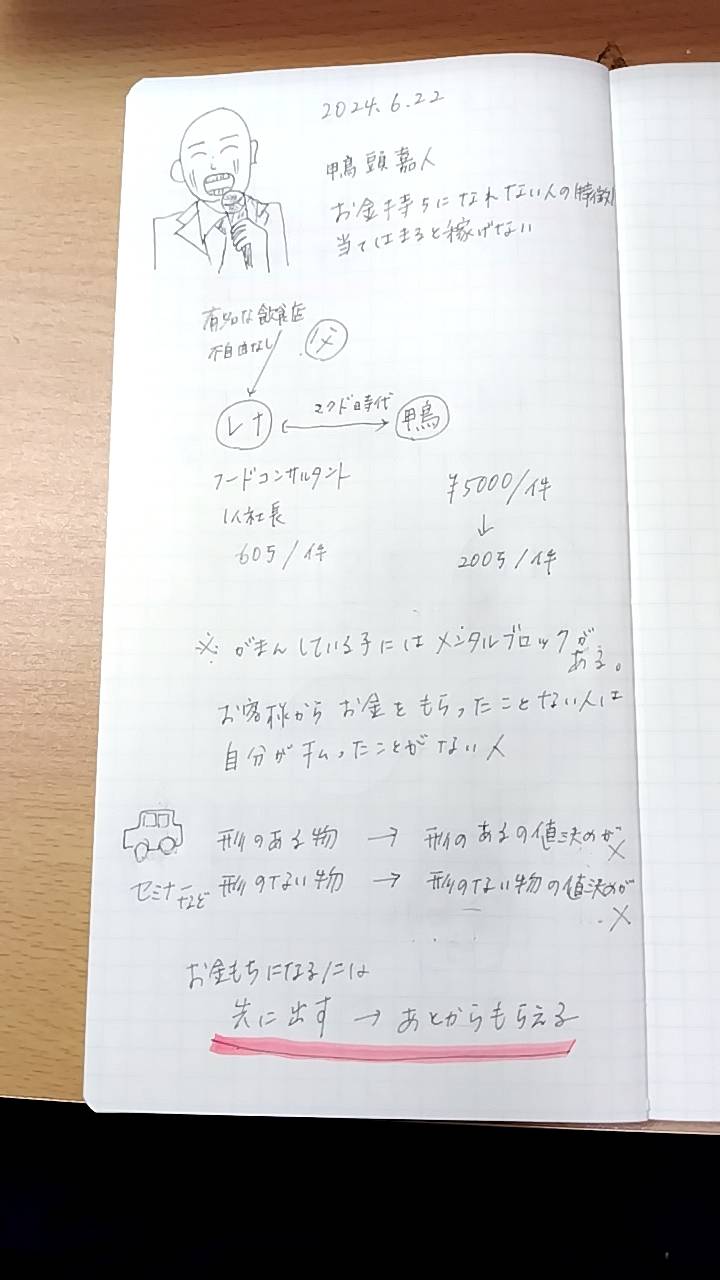 2024.6.22
鴨頭嘉人
お金持ちになれない人の特徴
当てはまると稼げない
有名な飲食店
不自由なし
父
レナ
マクド時代
鴨
フードコンサルタント
1人社長
60万/件
¥5000/件
↓
200万/件
※ がまんしている子にはメンタルブロックが
ある。
お客様からお金をもらったことない人は
自分が払ったことがない人
形のある物 → 形のあるの値決めが
×
セミナー
など
形のない物 → 形のない物の値決めが
×
お金もちになるには
先に出す → あとからもらえる